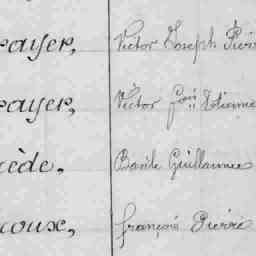 rayer, Victor Joseph Pierr
rayer, Victor Etienne
cède, Basile Guillaumee
coux, françois Pierre